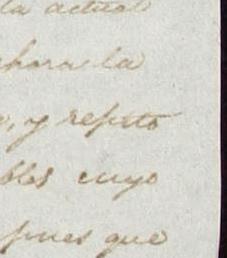 la actual
ahora la
o, y repito
bles cuyo
pues que